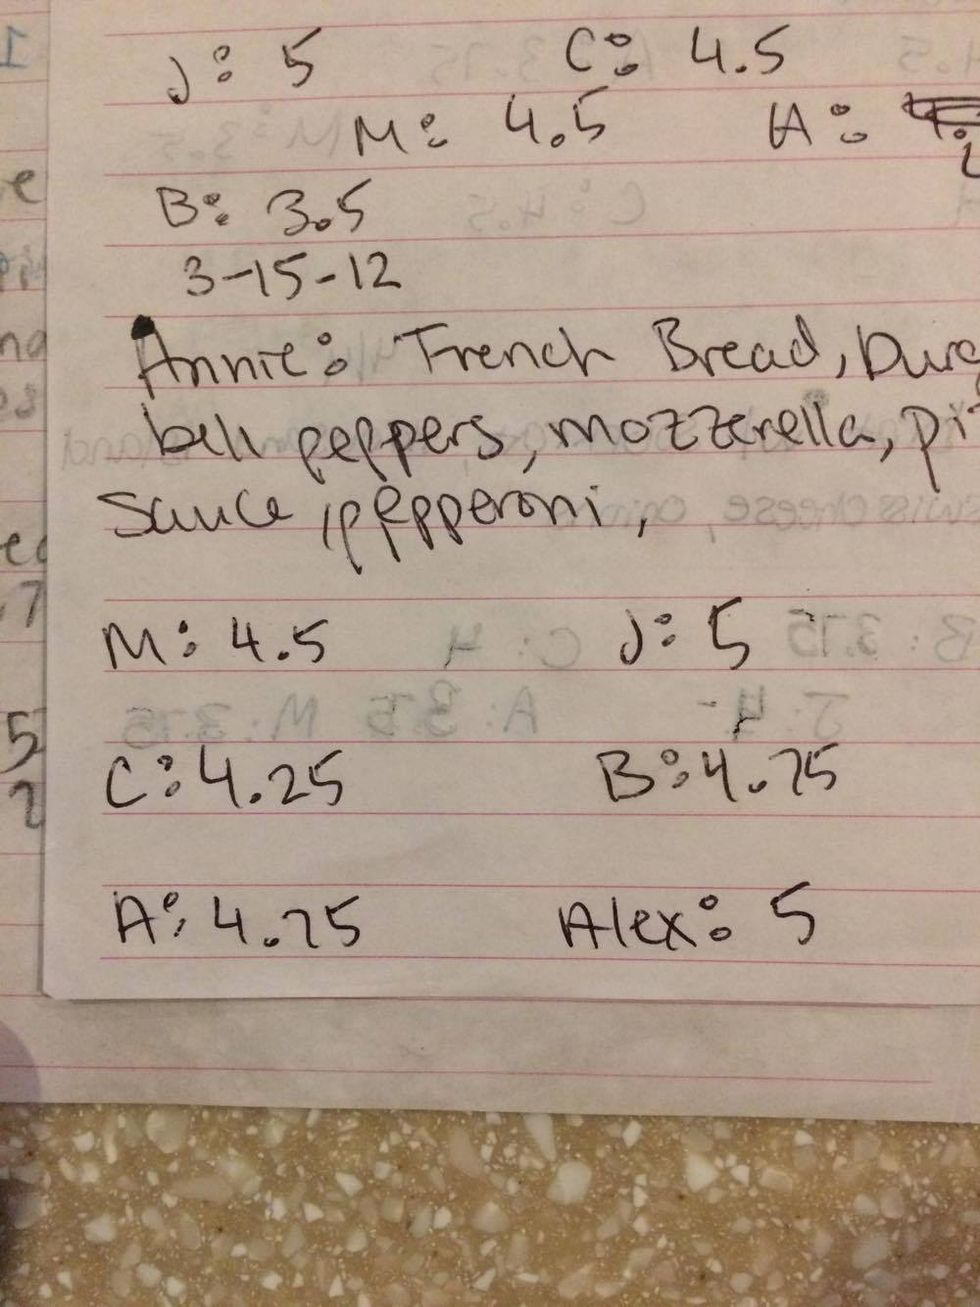 J: 5 C: 4.5
M: 4.5 A:
B: 3.5
3-15-12
Annie: French Bread,
bell peppers, mozzerella,
sauce, pepperoni,
M: 4.5 J: 5
C: 4.25 B: 4.75
A: 4.75 Alex: 5